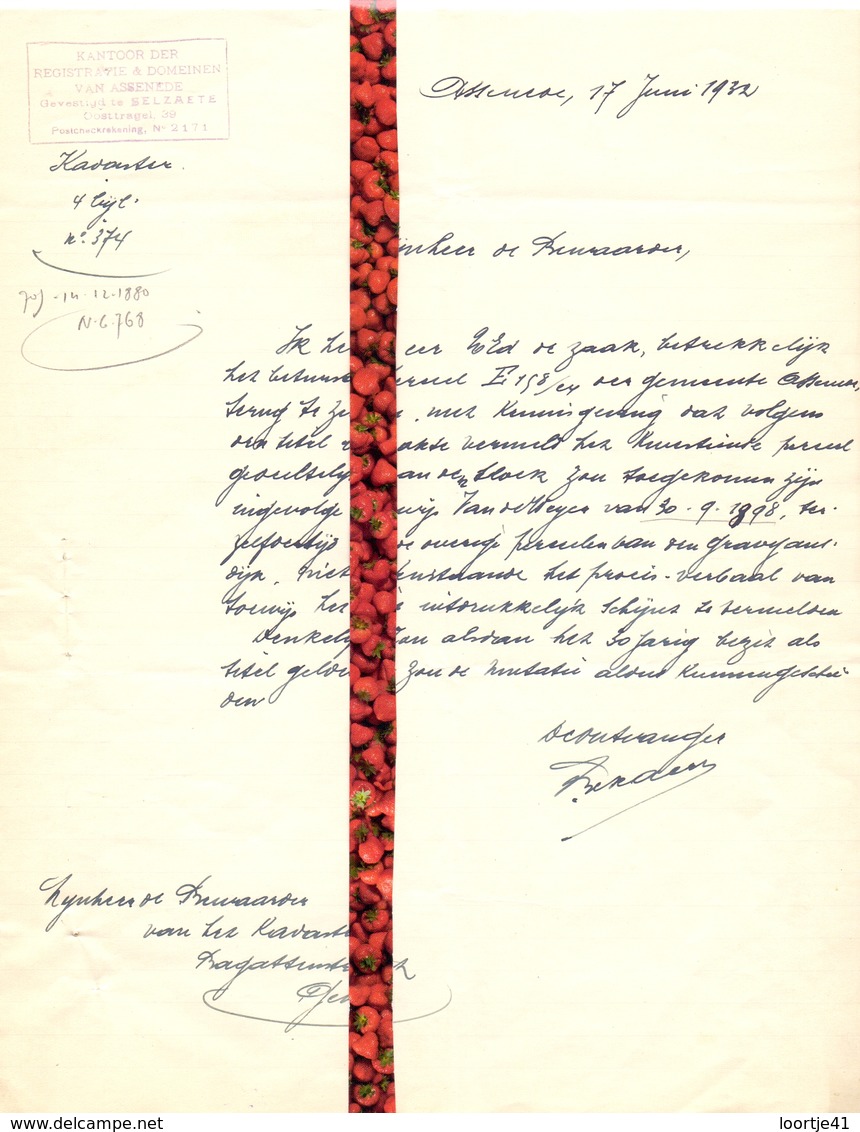 KANTOOR DER
REGISTRATIE & DOMEINEN
VAN ASSENEDE
Gevestigd te SELZAETE
Oosttragel, 39
Postcheckrekening, Nr 2171
Assenede, 17 Juni 1932
Kadaster.
4 bijl.
n° 374
14-12-1880
N. 6.768
nheer de Bewaarder,
Ik he eer UEd de zaak, betrekkelijk
het betwiste erceel E 158/ der gemeente Assenede,
terug te ze , met kennisgeving dat volgens
den titel akte vermeld het kwestieuse perceel
gedeeltelijk aan den block zou toegekomen zijn
ingevolge wijs Van de Weyer van 30-9-1898, ter-
zelfdertijd de overige perceelen van den Gravejans-
dijk, niet enstaande het proces-verbaal van
toewijs he uitdrukkelijk schijnt te vermelden
Denkelij zou alsdan het 30 jarig bezit als
titel gelde zou de mutatie aldus kunnen geschie
den
De Ontvanger
Mynheer de Bewaarder
van het Kadast
Bagattenst
Ge
www.delcampe.net
loortje41